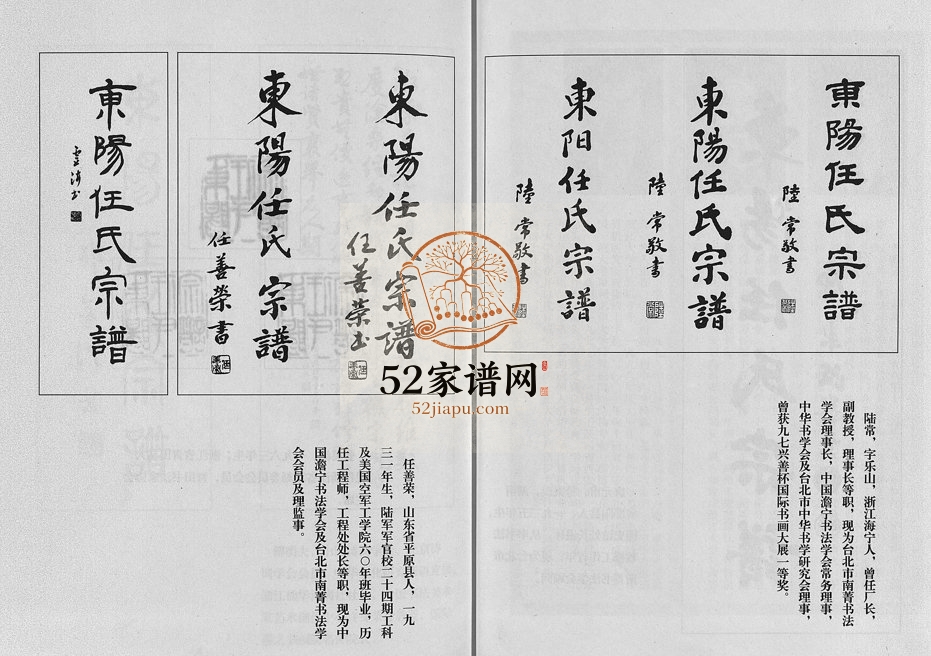 東陽任氏宗譜
陸常敬書
東陽任氏宗譜
陸常敬書
東阳任氏宗譜
陸常敬書
陆常，字乐山，浙江海宁人，曾任厂长，
副教授，理事长等职，现为台北市南菁书法
学会理事长，中国澹宁书法学会常务理事，
中华书学会及台北市中华书学研究会理事，
曾获九七兴善杯国际书画大展一等奖。
東陽任氏宗譜
任善荣书
東陽任氏宗譜
任善榮書
東陽任氏宗譜
任善荣，山东省平原县人，一九
三一年生，陆军军官校二十四期工科
及美国空军工学院六〇年班毕业，历
任工程师，工程处处长等职，现为中
国澹宁书法学会及台北市南菁书法学
会会员及理监事。
52家谱网
52jiapu.com